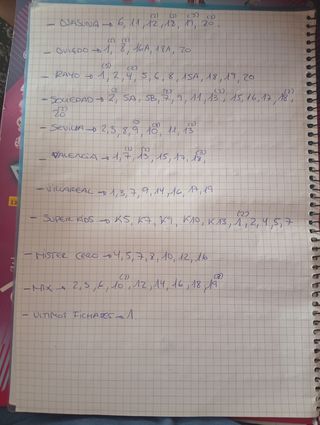 - OSASUNA → 6, 11, 12, 13, 19, 20.
- OVIEDO → 1, 8, 16A, 18A, 20
- RAYO → 1, 2, 4, 5, 6, 8, 15A, 18, 19, 20
- SOCIEDAD → 2, 5A, 5B, 7, 9, 11, 13, 15, 16, 17, 18,
20
- SEVILLA → 2, 3, 8, 9, 10, 12, 13
- VALENCIA → 1, 7, 13, 15, 17, 18
- VILLAREAL → 1, 3, 7, 9, 14, 16, 17, 19
- SUPER KIDS → K5, K7, K9, K10, K13, 1, 2, 4, 5, 7
- MISTER CERO → 4, 5, 7, 8, 10, 12, 16
- MIX → 2, 5, 6, 10, 12, 14, 16, 18, 19
- ULTIMOS FICHAJES → 1